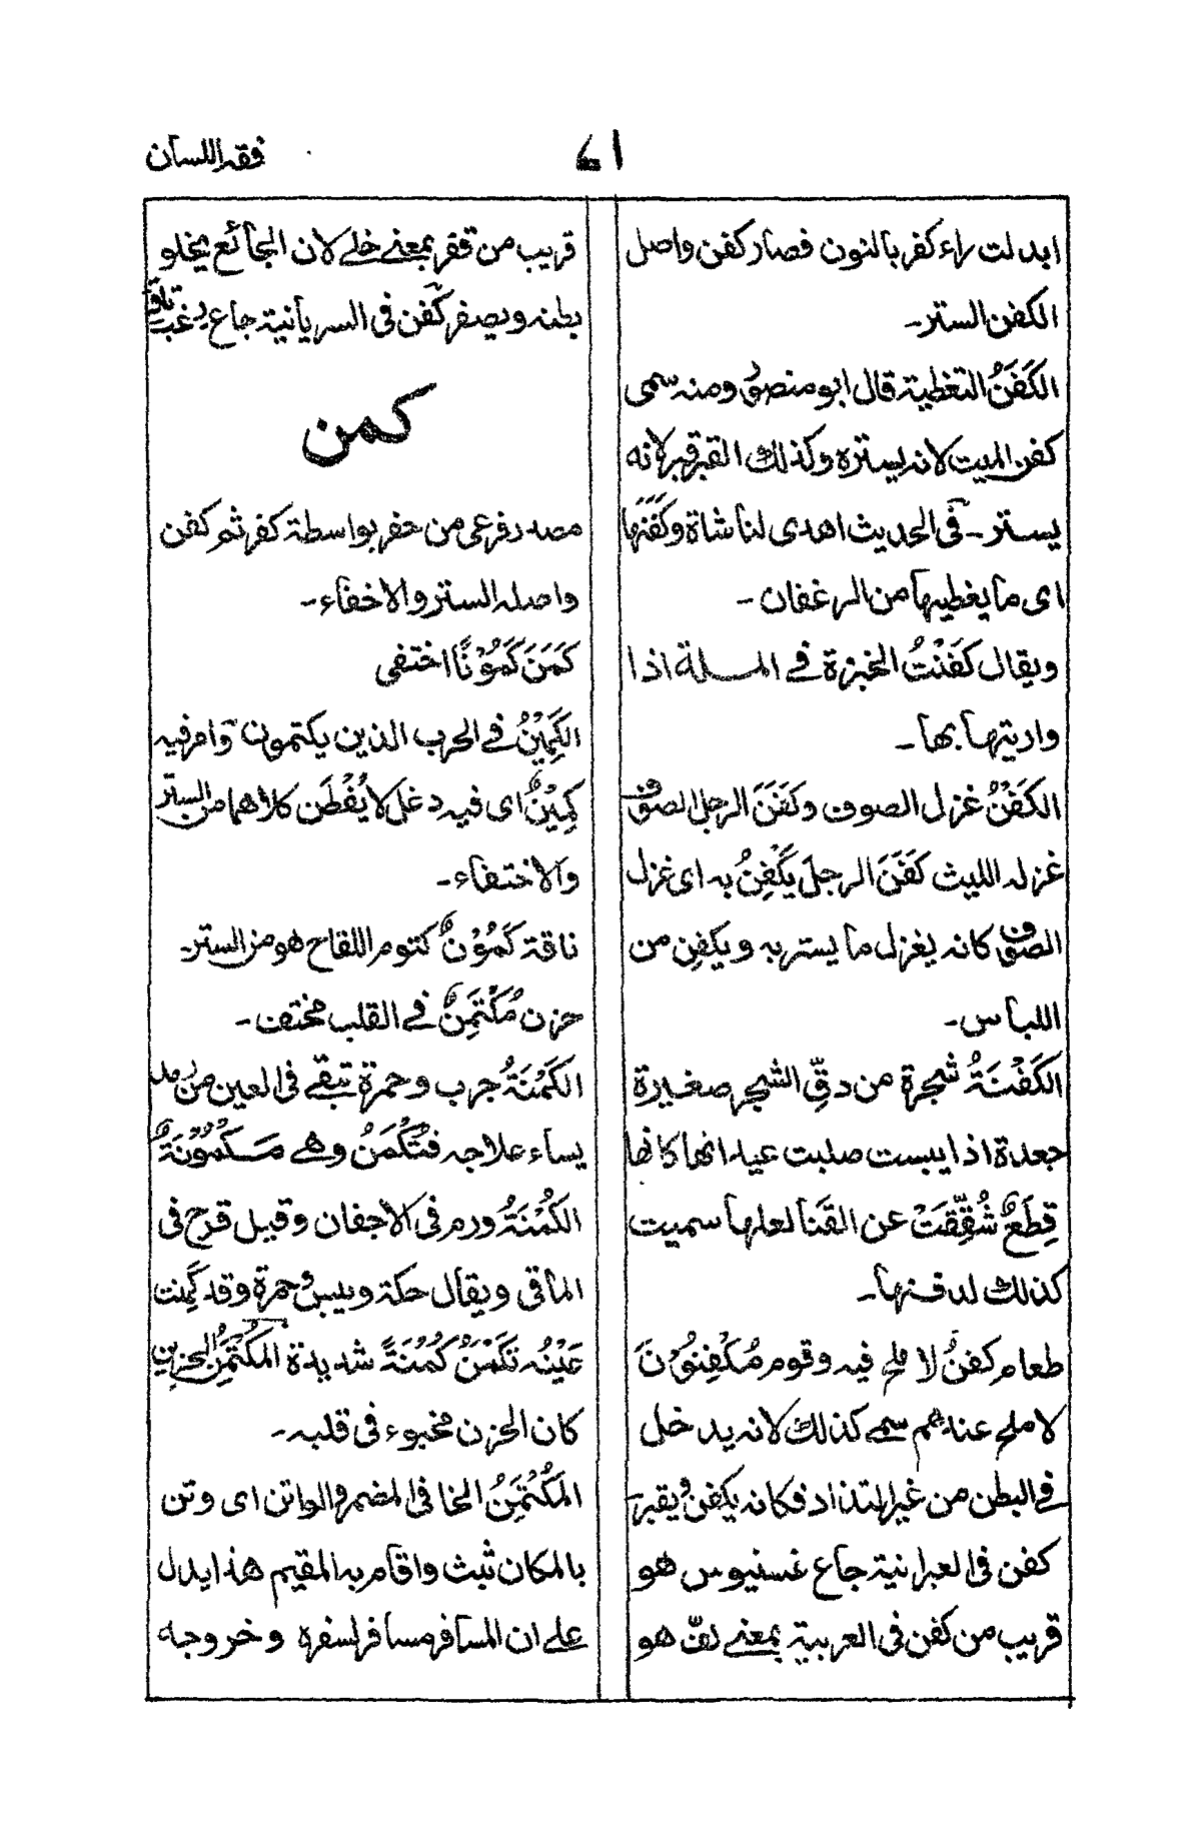 فقه اللسان
ابدلت راء كفر بالنون فصار كفن واصل
الكفن الستر-
الكَفَنُ التغطية قال ابو منصور ومنه سمى
كفن الميت لانه يستره وكذلك القبر قبر لانه
يستر- فى الحديث اهدى لنا شاة وكَفَنَها
اى ما يغطيها من الرغفان -
ويقال كَفَنْتُ الخبزة فے الملة اذا
واريتها بها-
الكَفْنُ غزل الصوف وكَفَنَ الرجل الصوف
غزله الليث كَفَنَ الرجلَ يَكْفِنُ به اى غزل
الصوف كانه يغزل ما يستر به ويكفِن من
اللباس-
الكَفْنَةُ شجرة من دقِّ الشجر صغيرة
جعدة اذا يبست صلبت عيدانها كانها
قِطَعٌ شُقِّقَتْ عن القَنا لعلها سميت
كذلك لدفنها-
طعام كفنٌ لا ملح فيه وقوم مُكْفِنُوْنَ
لا ملح عندهم سمى كذلك لانه يدخل
فے البطن من غير التذاذ فكانه يكفن ويقبر-
كفن فى العبرانية جاع غسنيوس هو
قريب من كفن فى العربية بمعنے لفّ هو
قريب من قفر بمعنے خلے لان الجائع يخلو
بطنه ويصفر كَفن فى السريانية جاع
كمن
مصدر فرعى من حفر بواسطة كفر ثم كفن
واصله الستر والاخفاء-
كَمَنَ كَمُوْنًا اختفى
الكَمِيْنُ فے الحرب الذين يكتمون وامر فيه
كَمِيْنٌ اى فيه دغل لا يُفْطَن كلاهما من الستر
والاختفاء-
ناقة كَمُوْنٌ كتوم اللقاح هو من الستر-
حزن مُكْتَمِنٌ فے القلب مختف-
الكُمْنَةُ جرب وحمرة تبقے فى العين من رمد
يساء علاجه فتُكْمَنُ وهے مَكْمُوْنَةٌ
الكُمْنَةُ ورم فى الاجفان وقيل قرح فى
المآقى ويقال حكة ويبس وحمرة وقد كَمِنت
عَيْنُه تَكْمَنُ كُمْنَةً شديدة المُكْتَمِنُ الحزين
كان الحزن مخبوء فى قلبه-
المُكْتَمِنُ الخافى المضمر والواتن اى وتن
بالمكان ثبث واقام به المقيم هذا يدل
علے ان المسافر مسافر لسفره وخروجه